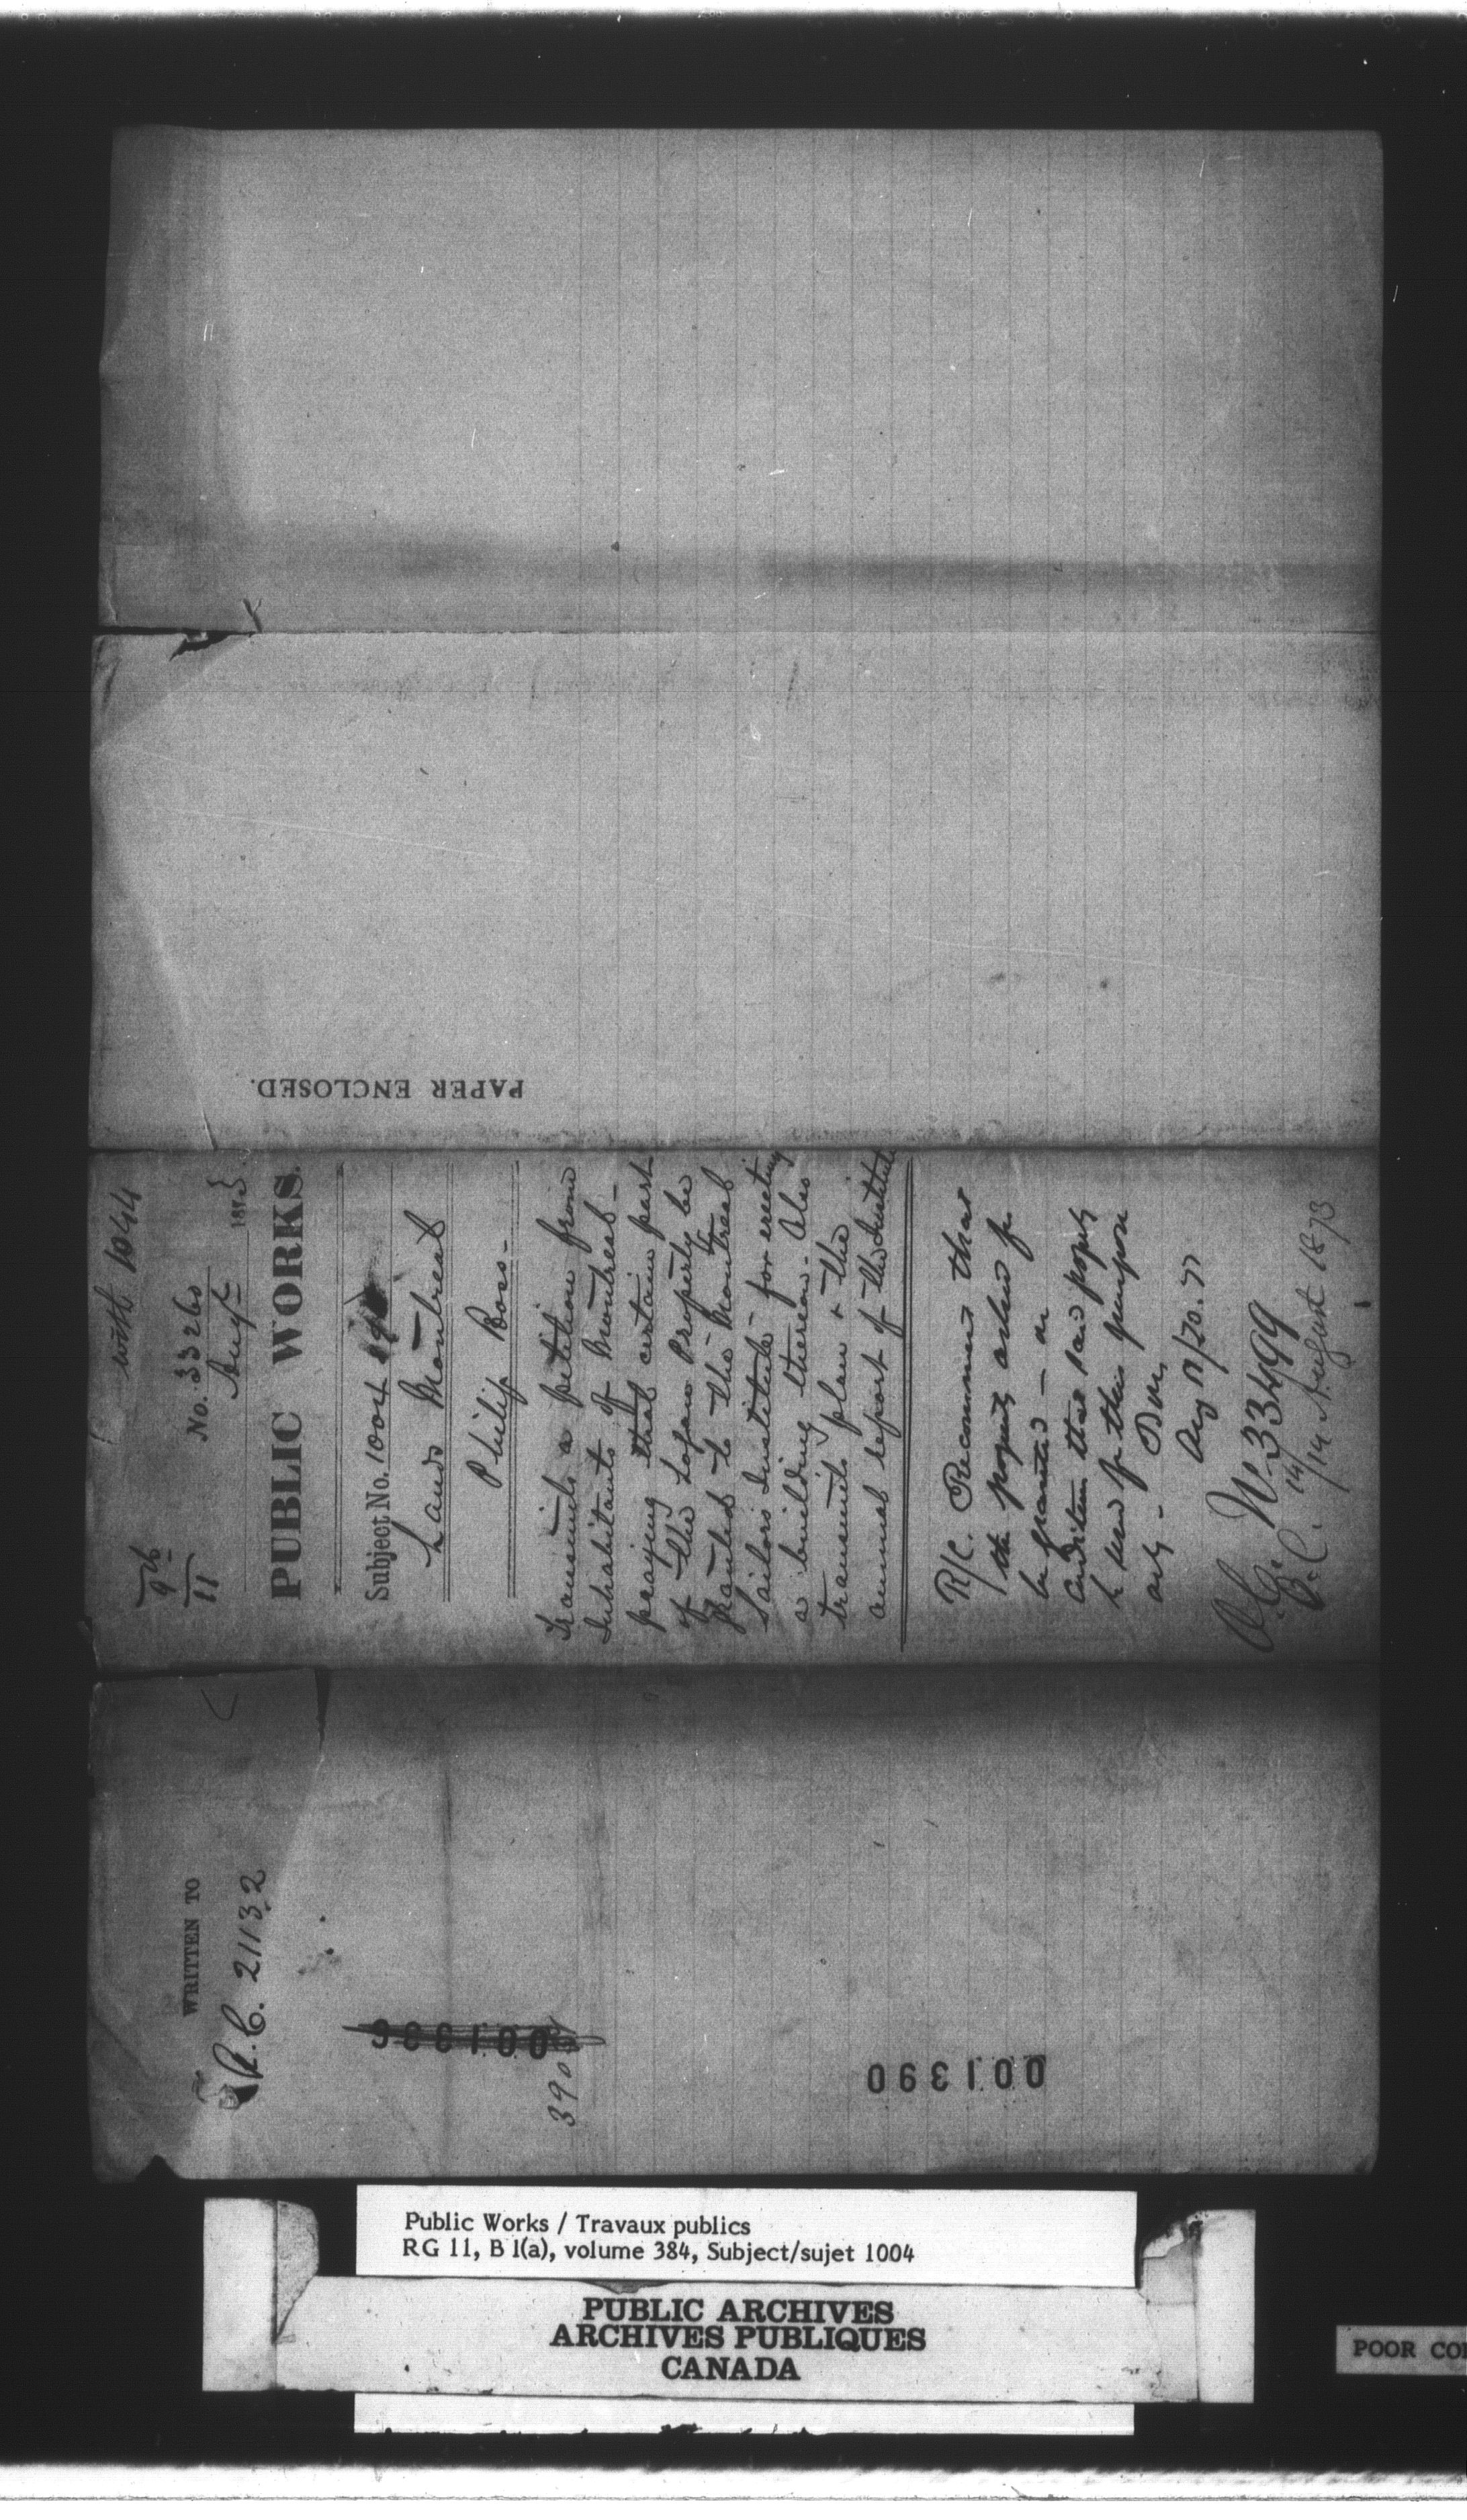 with 1044
96
11
No. 33260
Augt 1873
PUBLIC WORKS.
Subject No. 1004
Lands Montreal
Philip Ross-
Transmits a petition from
Inhabitants of Montreal-
praying that certain part
of the Logan Property be
granted to the Montreal
Sailors Institute- for erecting
a building thereon- Also
transmits plan & the
annual report of the Institute
R/C. Recommend that
the property asked for
be granted - on
condition that said property
be used for this purpose
only-
O.C. No 33499
14 August 1873
PAPER ENCLOSED.
WRITTEN TO
P.C. 21132
390
001390
Public Works / Travaux publics
RG 11, B 1(a), volume 384, Subject/sujet 1004
PUBLIC ARCHIVES
ARCHIVES PUBLIQUES
CANADA
POOR CO